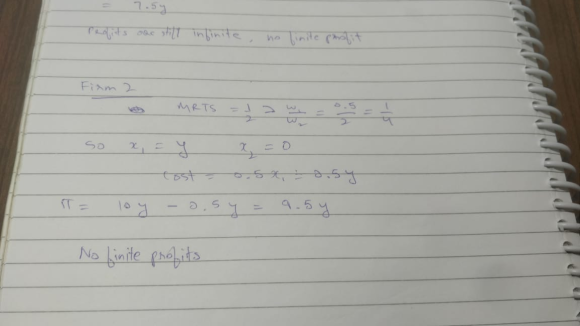 = 7.5y
Profits are still infinite, no finite profit
Firm 2
MRTS = 1/2 > w₁/w₂ = 0.5/2 = 1/4
So x₁ = y x₂ = 0
Cost = 0.5 x₁ = 0.5y
π = 10y - 0.5y = 9.5y
No finite profits